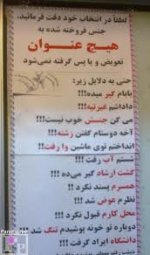 لطفاً در انتخاب خود دقت فرمائید.
جنس فروخته شده به
هیچ عنــوان
تعویض و یا پس گرفته نمی‌شود
حتی به دلایل زیر:
بابام گیر میده!!!
داداشم غیرتیه!!!
می گن جنسش خوب نیست!!!
آخه دوستام گفتن زشته!!!
انداختم توی ماشین وا رفت!!
شستم آب رفت !!!
گشت ارشاد گیر می‌ده !!!
همسرم پسند نکرد !!
نظرم عوض شد !!!
محل کارم قبول نکرد !!
دوباره تو خونه پوشیدم تنگ شد!!!
دانشگاه ایراد گرفت !!!